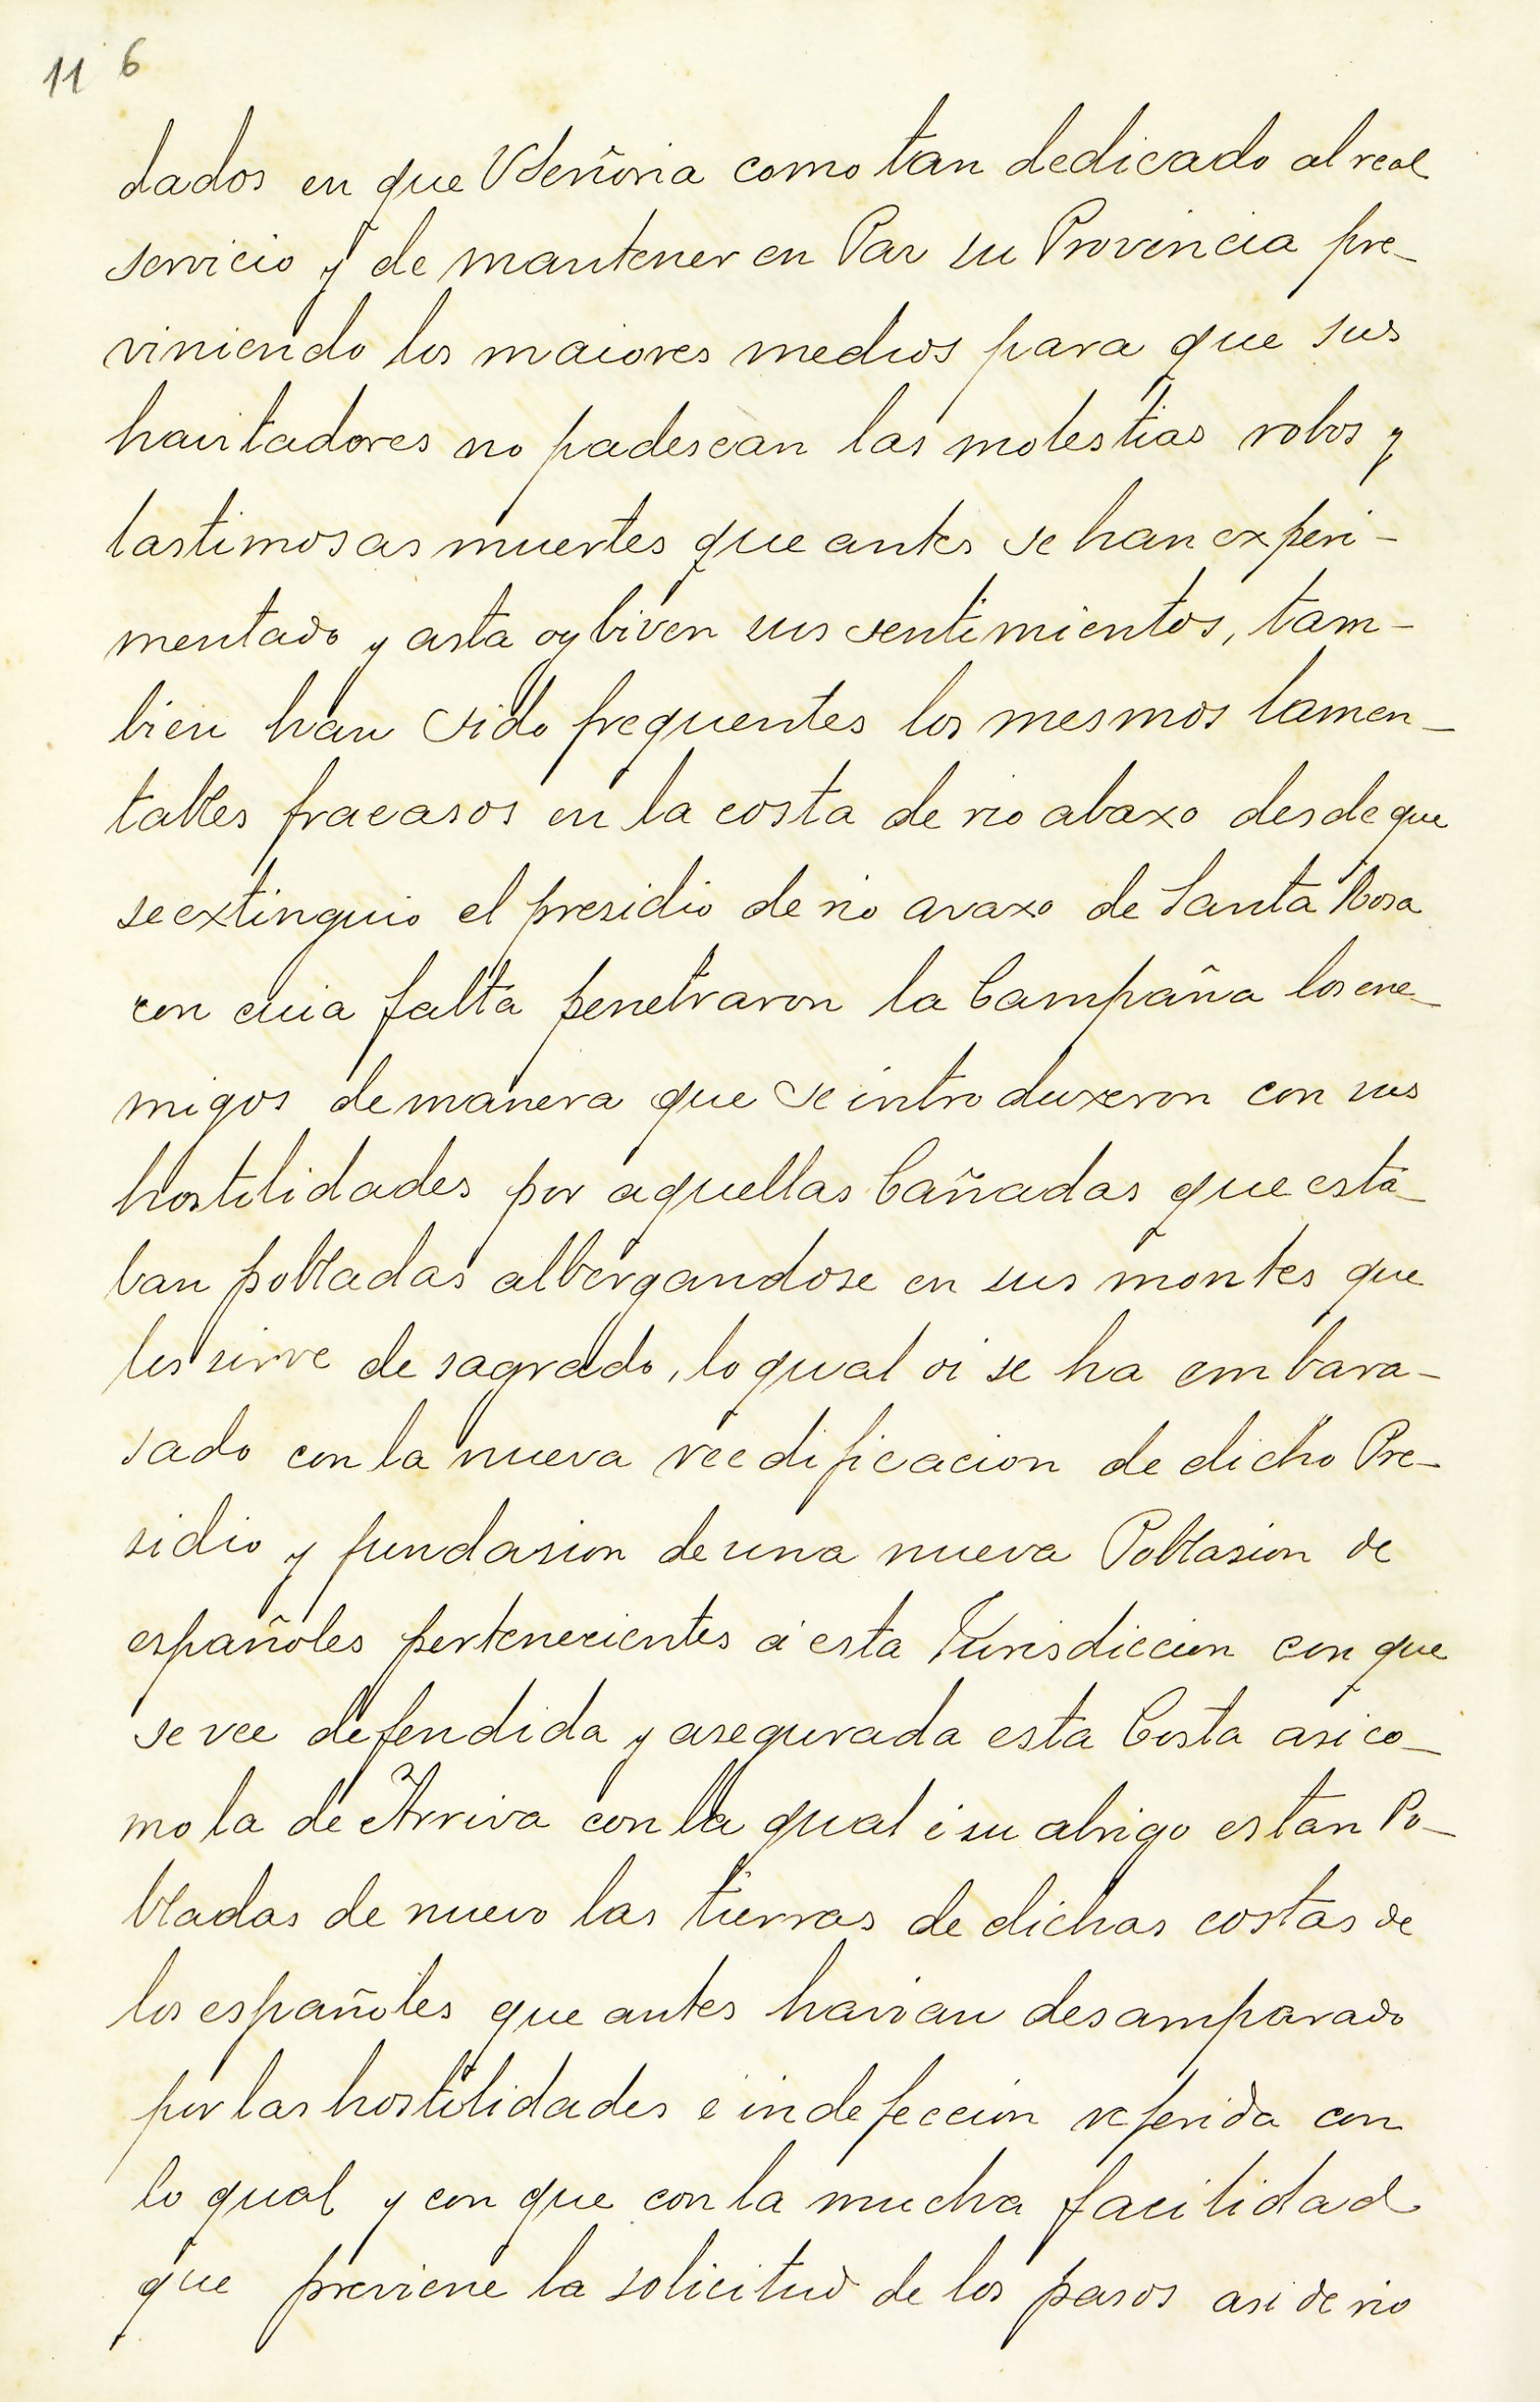 11 6
dados en que VSeñoria como tan dedicado al real
servicio y de mantener en Paz su Provincia pre-
viniendo los maiores medios para que sus
havitadores no padescan las molestias robos y
lastimosas muertes que antes se han experi-
mentado y asta oy biven sus sentimientos, tam-
bien han sido frequentes los mesmos lamen-
tables fracasos en la costa de rio abaxo desde que
se extinguio el presidio de rio avaxo de Santa Rosa
con cuia falta penetraron la Campaña los ene-
migos de manera que se introduxeron con sus
hostilidades por aquellas Cañadas que esta-
ban pobladas albergandose en sus montes que
les sirve de sagrado, lo qual oi se ha embara-
sado con la nueva reedificacion de dicho Pre-
sidio y fundasion de una nueva Poblasion de
españoles pertenecientes á esta Jurisdiccion con que
se vee defendida y asegurada esta Costa asi co-
mo la de Arriva con la qual i su abrigo estan Po-
bladas de nuevo las tierras de dichas costas de
los españoles que antes havian desamparado
por las hostilidades é indefeccion referida con
lo qual y con que con la mucha facilidad
que previene la solicitud de los pasos asi de rio